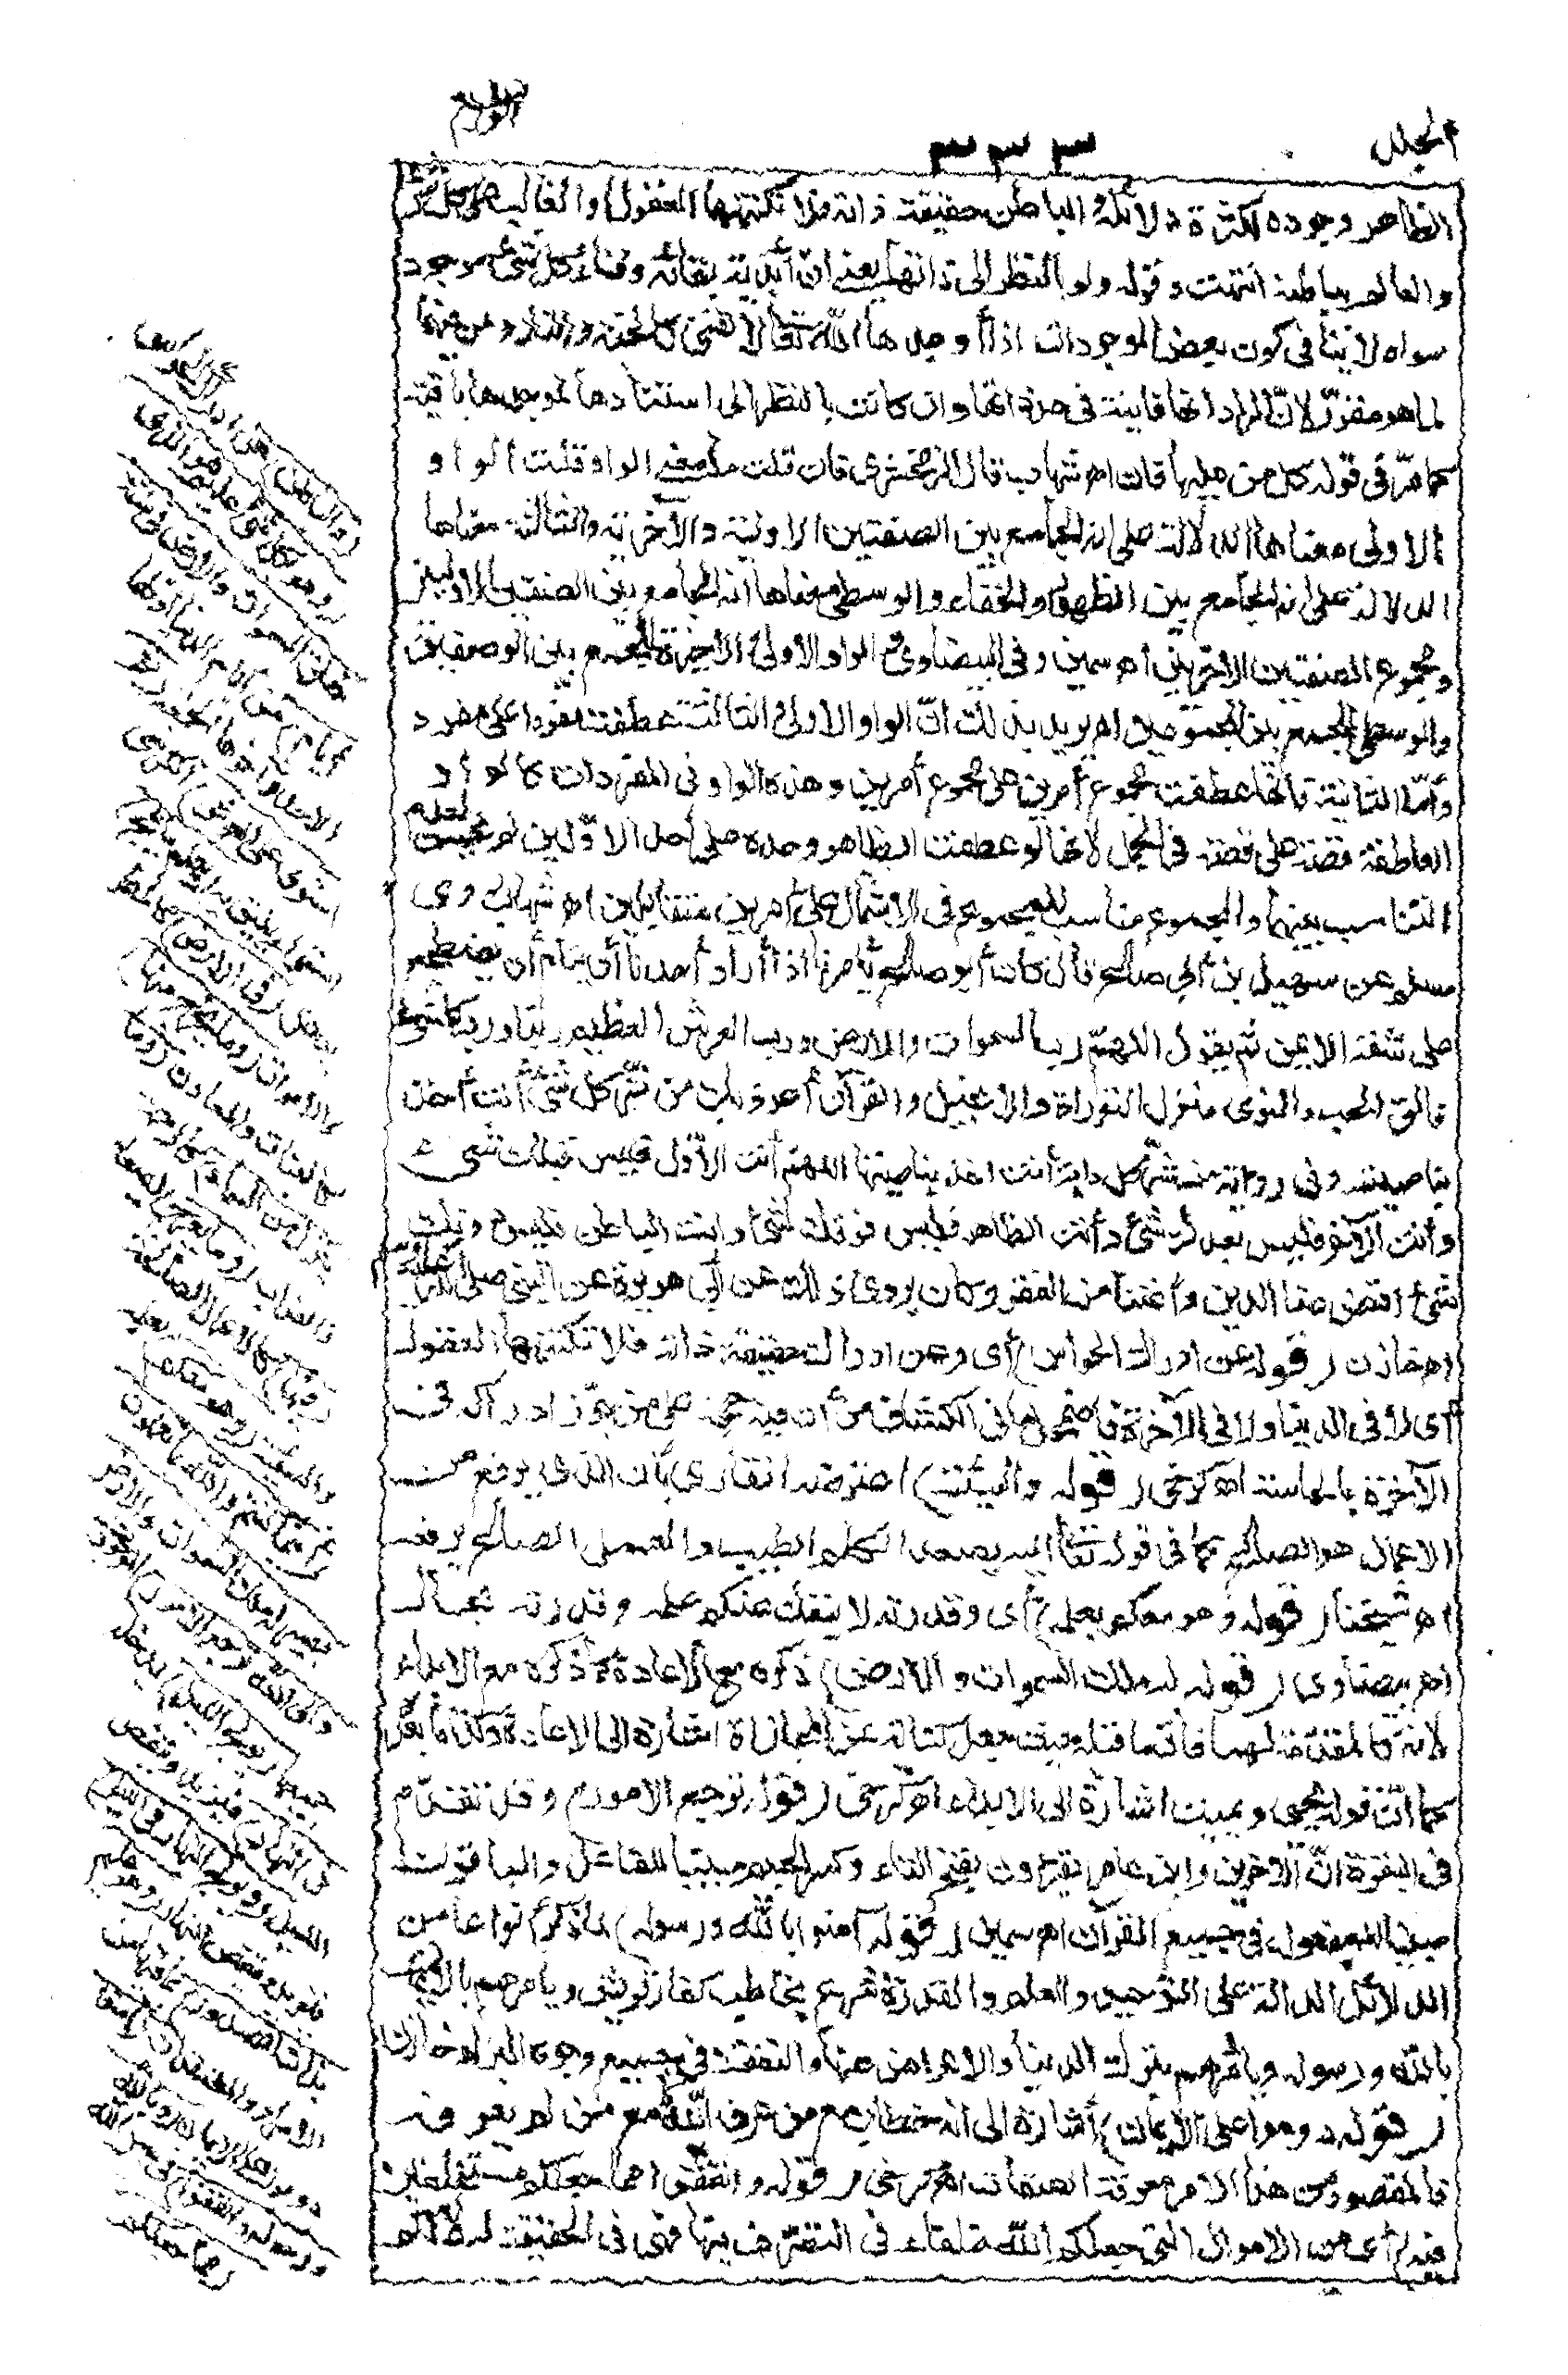 الظاهر وجوده لكثرة دلائله والباطن حقيقة ذاته فلا تكتنهها العقول والغالب على كل شئ
والعالم بباطنه انتهت وقوله ولو بالنظر الى ذاتها يعنى ان أبدية بقائه وفناء كل شئ موجود
سواه لا ينافى كون بعض الموجودات اذا أوجدها الله تعالى لا تفنى كالجنة والنار ومن فيهما
لما هو مقرر لان المراد انها فانية فى حد ذاتها وان كانت بالنظر الى استنادها لموجدها باقية
كما مر فى قوله كل من عليها فان اه شهاب قال الزمخشرى فان قلت ما معنى الواو قلت الواو
الاولى معناها الدلالة على انه الجامع بين الصفتين الاولية والآخرية والثالثة معناها
الدلالة على انه الجامع بين الظهور والخفاء والوسطى معناها انه الجامع بين الصفتين الاوليين
ومجموع الصفتين الاخريين اه سمين وفى البيضاوى والواو الاولى والاخيرة للجمع بين الوصفين
والوسطى للجمع بين المجموعين اه يريد بذلك ان الواو الاولى والثالثة عطفت مفردا على مفرد
وأما الثانية فانها عطفت مجموع أمرين على مجموع أمرين وهذه الواو فى المفردات كالواو
العاطفة قصة على قصة فى الجمل لانها لو عطفت الظاهر وحده على أحد الاولين لم يحسن لعدم
التناسب بينهما والمجموع مناسب للمجموع فى الاشتمال على أمرين متقابلين اه شهاب وروى
مسلم عن سهيل بن أبى صالح قال كان أبو صالح يأمرنا اذا أراد أحدنا أن ينام أن يضطجع
على شقه الايمن ثم يقول اللهم رب السموات والارض ورب العرش العظيم ربنا ورب كل شئ
فالق الحب والنوى منزل التوراة والانجيل والقرآن أعوذ بك من شر كل شئ أنت آخذ
بناصيته وفى رواية من شر كل دابة أنت آخذ بناصيتها اللهم أنت الاول فليس قبلك شئ
وأنت الآخر فليس بعدك شئ وأنت الظاهر فليس فوقك شئ وانت الباطن فليس دونك
شئ اقض عنا الدين وأغننا من الفقر وكان يروى ذلك عن أبى هريرة عن النبى صلى الله عليه وسلم
اه خازن (قوله عن ادراك الحواس) أى وعن ادراك حقيقة ذاته فلا تكتنهها العقول
أى لا فى الدنيا ولا فى الآخرة فاضمحل ما فى الكشاف من أن فيه حجة على من جوز ادراكه فى
الآخرة بالحاسة اه كرخى (قوله والسيئة) اعترضه القارى بأن الذى يرفع من
الاعمال هو الصالح كما فى قوله تعالى اليه يصعد الكلم الطيب والعمل الصالح يرفعه
اه شيخنا (قوله وهو معكم بعلمه) أى وقدرته لا ينفك عنكم علمه وقدرته بحال
اه بيضاوى (قوله له ملك السموات والارض) ذكره مع الاعادة كما ذكره مع الابداء
لانه كالمقدمة لهما
كما ان قوله يحيى ويميت اشارة الى الابداء اه كرخى (قوله ترجع الامور) وقد تقدم
فى البقرة ان الاخوين وابن عامر يقرؤن بفتح التاء وكسر الجيم مبنيا للفاعل والباقون
مبنيا للمفعول فى جميع القرآن اه سمين (قوله آمنوا بالله ورسوله) لما ذكر أنواعا من
الدلائل الدالة على التوحيد والعلم والقدرة شرع يخاطب كفار قريش ويأمرهم بالايمان
بالله ورسوله ويأمرهم بترك الدنيا والاعراض عنها والنفقة فى جميع وجوه البر اه خازن
(قوله دوموا على الايمان) أشارة الى انه خطاب مع من عرف الله لا مع من لم يعرفه
فالمقصود من هذا الامر معرفة الصفات اه كرخى (قوله وانفقوا مما جعلكم مستخلفين
فيه) أى من الاموال التى جعلكم الله خلفاء فى التصرف فيها فهى فى الحقيقة له لا لكم
(وهو بكل شئ عليم هو الذى
خلق السموات والارض فى ستة
أيام) من أيام الدنيا أولها
الاحد وآخرها الجمعة (ثم
استوى على العرش) الكرسى
استواء يليق به (يعلم ما يلج)
يدخل (فى الارض) كالمطر
والاموات (وما يخرج منها)
كالنبات والمعادن (وما
ينزل من السماء) كالرحمة
والعذاب (وما يعرج) يصعد
(فيها) كالاعمال الصالحة
والسيئة (وهو معكم) بعلمه
(أينما كنتم والله بما تعملون
بصير له ملك السموات والارض
والى الله ترجع الامور) الموجودات
جميعها (يولج الليل) يدخله
(فى النهار) فيزيد وينقص
الليل (ويولج النهار فى الليل)
فيزيد وينقص النهار (وهو عليم
بذات الصدور) بما فيها من
الاسرار والمعتقدات (آمنوا)
دوموا على الايمان (بالله
ورسوله وانفقوا) فى سبيل الله
(مما جعلكم